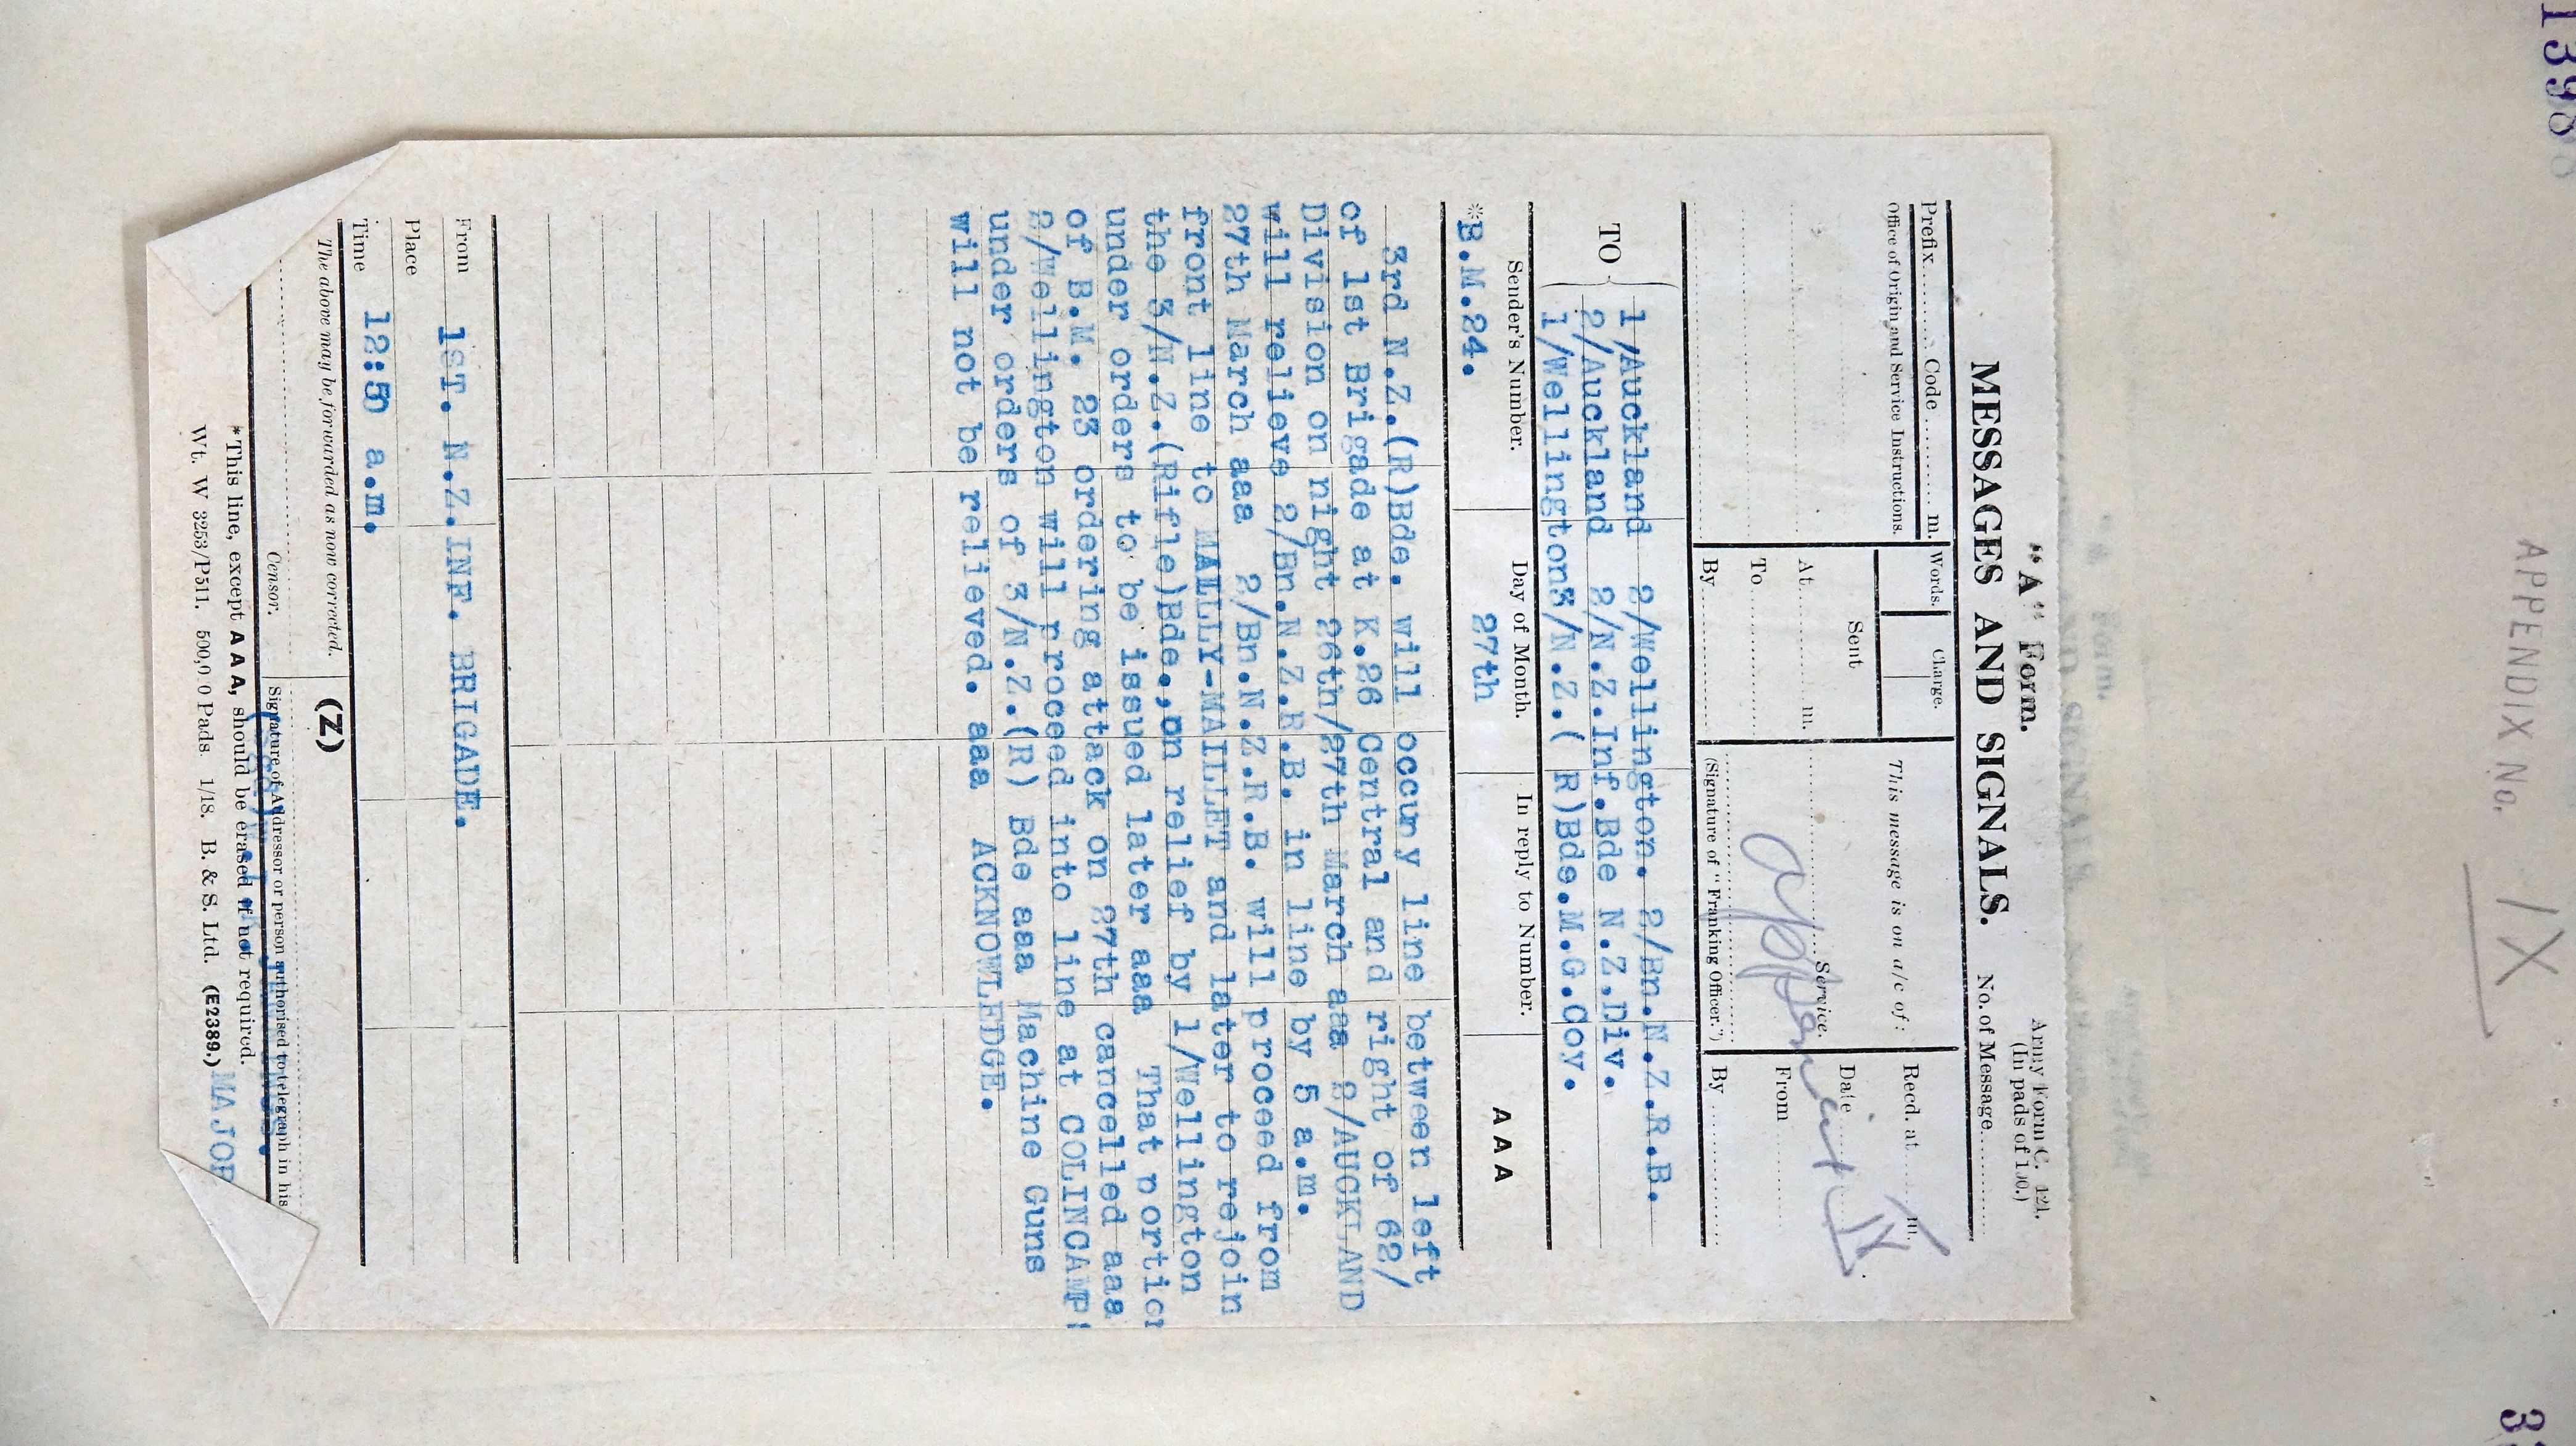 APPENDIX No. IX
"A" Form.
Army Form C. 121.
(In pads of 100.)
MESSAGES AND SIGNALS.
No. of Message
Prefix Code m.
Words. Charge.
This message is on a/c of:
Recd. at m.
Office of Origin and Service Instructions.
Sent
Service.
Date
At m.
From
To
By
(Signature of "Franking Officer.")
By
Appendix IX
TO
1/Auckland 2/Wellington. 2/Bn.N.Z.R.B.
2/Auckland 2/N.Z.Inf.Bde N.Z.Div.
1/Wellington3/N.Z.( R)Bde.M.G.Coy.
Sender's Number. Day of Month. In reply to Number. AAA
*B.M.24. 27th
3rd N.Z.(R)Bde. will occupy line between left
of 1st Brigade at K.26 Central and right of 62/
Division on night 26th/27th March aaa 2/AUCKLAND
will relieve 2/Bn.N.Z.R.B. in line by 5 a.m.
27th March aaa 2/Bn.N.Z.R.B. will proceed from
front line to MAILLY-MAILLET and later to rejoin
the 3/N.Z.(Rifle)Bde.,on relief by 1/Wellington
under orders to be issued later aaa That portion
of B.M. 23 ordering attack on 27th cancelled aaa
2/Wellington will proceed into line at COLINCAMPS
under orders of 3/N.Z.(R) Bde aaa Machine Guns
will not be relieved. aaa ACKNOWLEDGE.
From 1ST. N.Z.INF. BRIGADE.
Place
Time 12:50 a.m.
The above may be forwarded as now corrected. (Z)
Censor. Signature of Addressor or person authorised to telegraph in his
*This line, except AAA, should be erased if not required.
MAJOR
Wt. W 3253/P511. 500,0 0 Pads. 1/18. B. & S. Ltd. (E2389.)